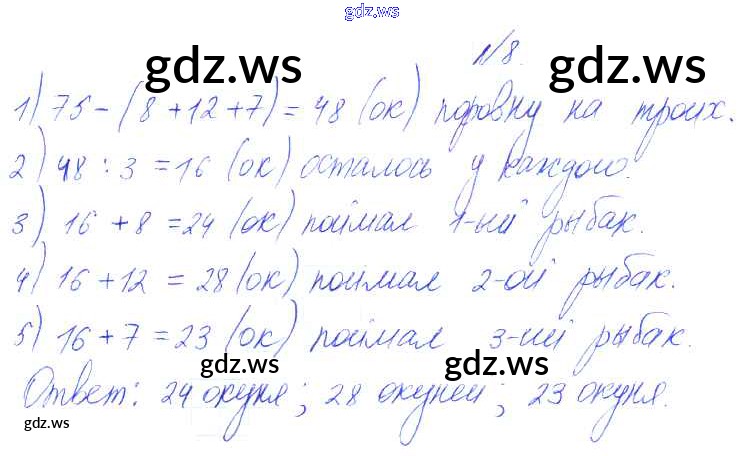 gdz.ws
№8.
gdz.ws gdz.ws
1) 75 - (8 + 12 + 7) = 48 (ок) поровну на троих.
2) 48 : 3 = 16 (ок) осталось у каждого.
3) 16 + 8 = 24 (ок) поймал 1-ый рыбак.
4) 16 + 12 = 28 (ок) поймал 2-ой рыбак.
5) 16 + 7 = 23 (ок) поймал 3-ий рыбак.
gdz.ws gdz.ws
Ответ: 24 окуня; 28 окуней; 23 окуня.
gdz.ws